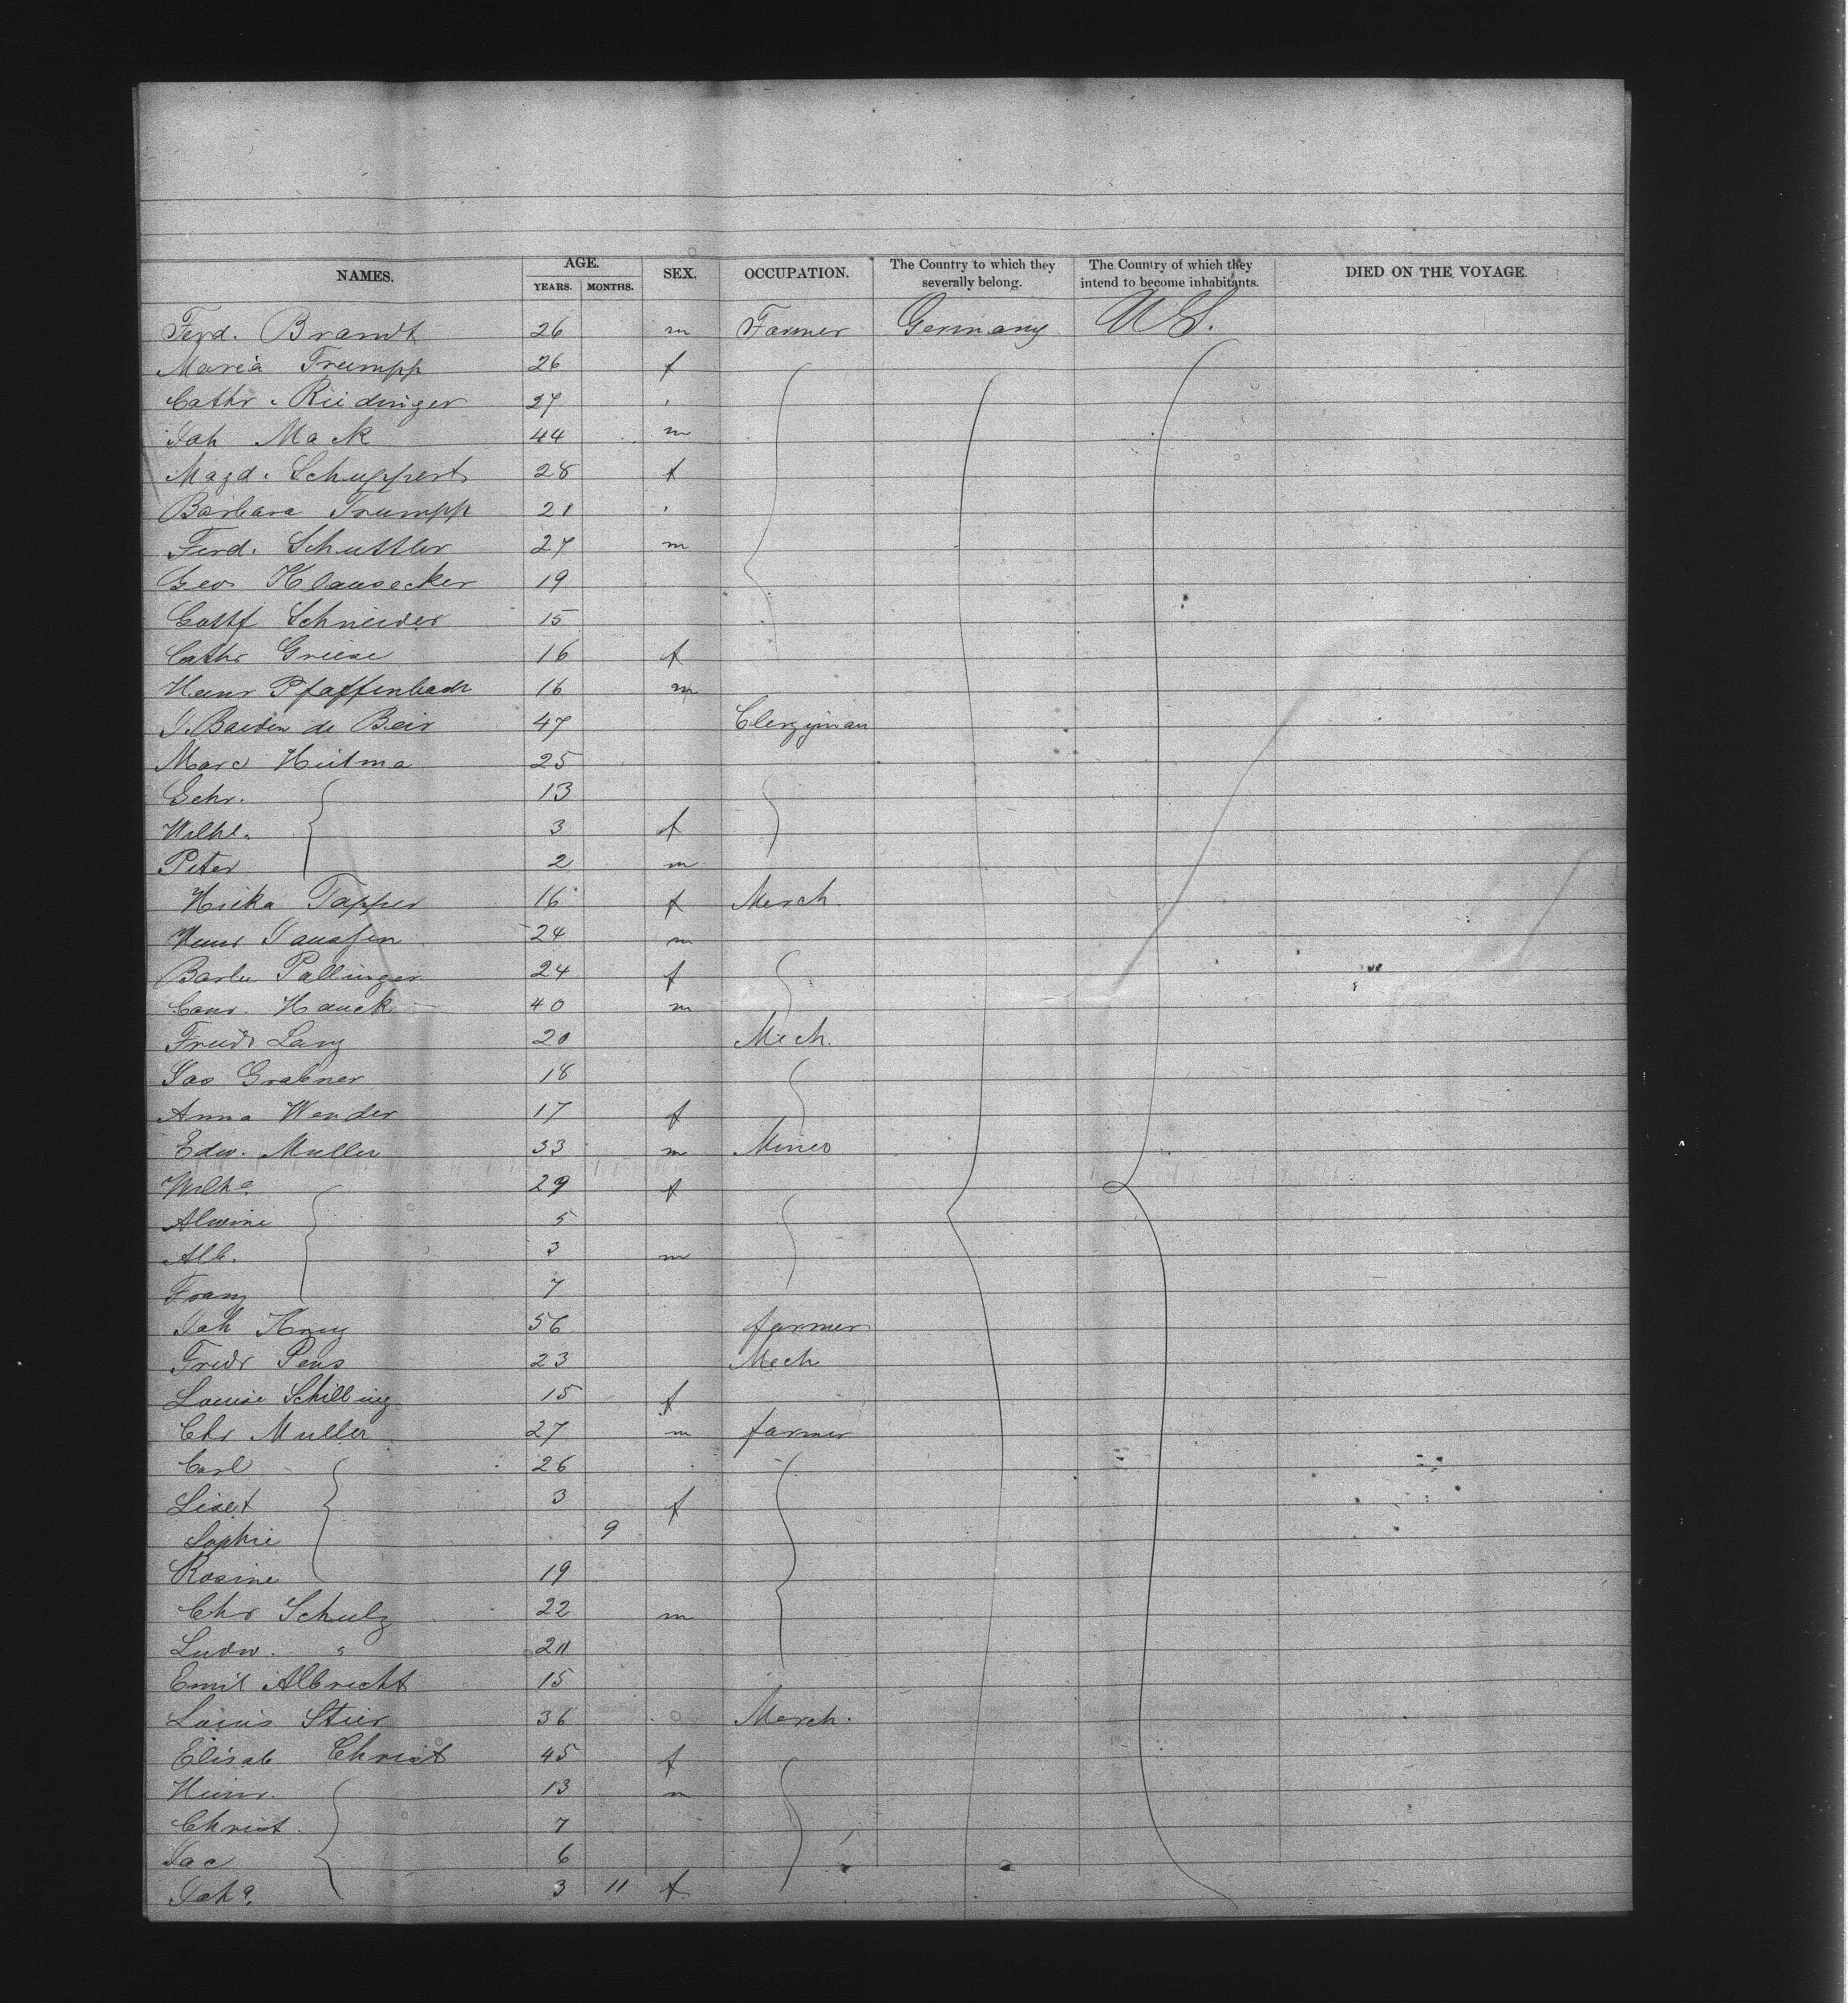 NAMES. AGE. SEX. OCCUPATION. The Country to which they severally belong. The Country of which they intend to become inhabitants. DIED ON THE VOYAGE.
YEARS. MONTHS.
Ferd. Brandt 26 m Farmer Germany U.S.
Maria Trumpp 26 f
Cathr. Riidinger 27
Joh Mack 44 m
Magd. Schuppert 28 f
Barbara Trumpp 21
Ferd. Schuttler 27 m
Geo. Klausecker 19
Gottf Schneider 15
Cathr Griese 16 f
Heinr Pfaffenbach 16 m
J. de Beir 47 Clergyman
Marc Heitma 25
Gehr. 13
Wilhl. 3 f
Peter 2 m
Tapper 16 f Merch.
Heinr Janssen 24 m
Barb. Pallinger 24 f
Conr. Hauck 40 m
Friedr Lang 20 Mech.
Jos Grabner 18
Anna Wender 17 f
Edw. Muller 33 m Miner
Wilha 29 f
Alwine 5
Alb. 3 m
Franz 7
Joh Krug 56 farmer
Fredr Pens 23 Mech
Louise Schilling 15 f
Chr Muller 27 m farmer
Carl 26
Liset 3 f
Sophie 9
Rosine 19
Chr Schulz 22 m
Ludw. "
Emil Albrecht 15
Louis Stier 36 Merch.
Elisab Christ 45 f
Heinr. 13 m
Christ. 7
Jac 6
Joha. 3 11 f